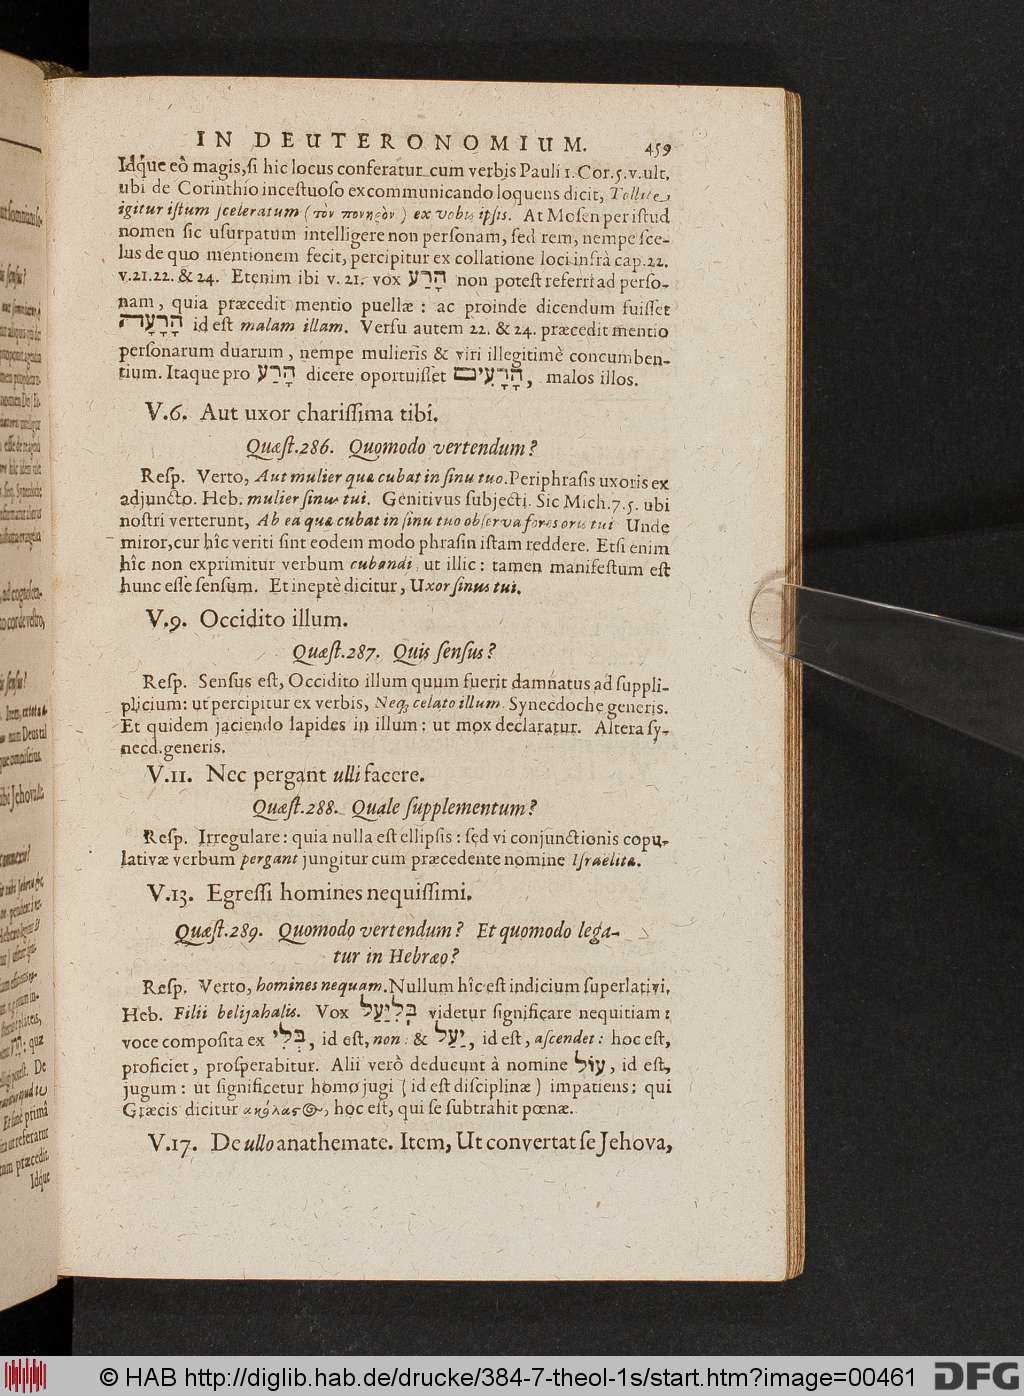 IN DEUTERONOMIUM. 459
Idq́ue eò magis, si hic locus conferatur cum verbis Pauli 1. Cor. 5. v. ult.
ubi de Corinthio incestuoso excommunicando loquens dicit, Tollite
igitur istum sceleratum (τὸν πονηρὸν) ex vobis ipsis. At Mosen per istud
nomen sic usurpatum intelligere non personam, sed rem, nempe sce-
lus de quo mentionem fecit, percipitur ex collatione loci infrà cap. 22.
v. 21. 22. & 24. Etenim ibi v. 21. vox הָרָע non potest referri ad perso-
nam, quia præcedit mentio puellæ : ac proinde dicendum fuisset
הָרָעָה id est malam illam. Versu autem 22. & 24. præcedit mentio
personarum duarum, nempe mulieris & viri illegitimè concumben-
tium. Itaque pro הָרָע dicere oportuisset הָרָעִים, malos illos.
V. 6. Aut uxor charissima tibi.
Quæst. 286. Quomodo vertendum?
Resp. Verto, Aut mulier quæ cubat in sinu tuo. Periphrasis uxoris ex
adjuncto. Heb. mulier sinus tui. Genitivus subjecti. Sic Mich. 7. 5. ubi
nostri verterunt, Ab ea quæ cubat in sinu tuo observa fores oris tui Unde
miror, cur hîc veriti sint eodem modo phrasin istam reddere. Etsi enim
hîc non exprimitur verbum cubandi, ut illic : tamen manifestum est
hunc esse sensum. Et ineptè dicitur, Uxor sinus tui.
V. 9. Occidito illum.
Quæst. 287. Quis sensus?
Resp. Sensus est, Occidito illum quum fuerit damnatus ad suppli-
plicium : ut percipitur ex verbis, Neq; celato illum. Synecdoche generis.
Et quidem jaciendo lapides in illum : ut mox declaratur. Altera sy-
necd. generis.
V. 11. Nec pergant ulli facere.
Quæst. 288. Quale supplementum?
Resp. Irregulare : quia nulla est ellipsis : sed vi conjunctionis copu-
lativæ verbum pergant jungitur cum præcedente nomine Israëlitæ.
V. 13. Egressi homines nequissimi.
Quæst. 289. Quomodo vertendum? Et quomodo lega-
tur in Hebræo?
Resp. Verto, homines nequam. Nullum hîc est indicium superlativi.
Heb. Filii belijahalis. Vox בְּלִיַּעַל videtur significare nequitiam :
voce composita ex בְּלִי, id est, non : & יַעַל, id est, ascendet : hoc est,
proficiet, prosperabitur. Alii verò deducunt à nomine עוֹל, id est,
jugum : ut significetur homo jugi (id est disciplinæ) impatiens; qui
Græcis dicitur ἀκόλαστος, hoc est, qui se subtrahit pœnæ.
V. 17. De ullo anathemate. Item, Ut convertat se Jehova,
© HAB http://diglib.hab.de/drucke/384-7-theol-1s/start.htm?image=00461
DFG